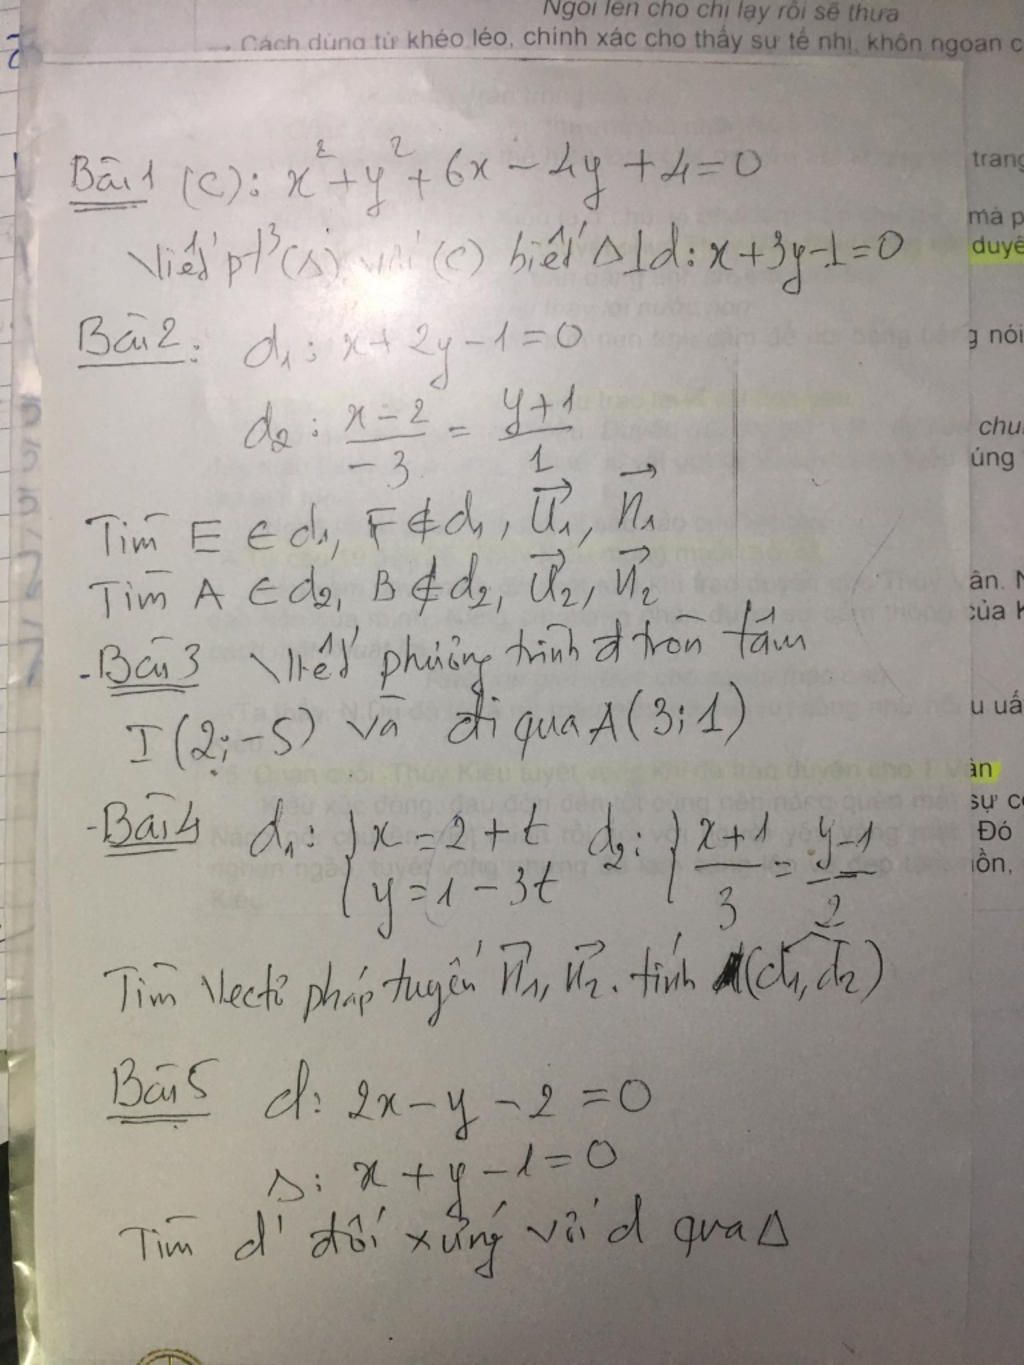 Ngồi lên cho chị lạy rồi sẽ thưa
→ Cách dùng từ khéo léo, chính xác cho thấy sự tế nhị, khôn ngoan c
Bài 1 (C): x² + y² + 6x - 4y + 4 = 0
Viết pt³ (Δ) với (C) biết Δ ⊥ d: x + 3y - 1 = 0
Bài 2: d₁: x + 2y - 1 = 0
d₂: (x - 2)/(-3) = (y + 1)/1
Tìm E ∈ d₁, F ∉ d₁, u₁→, n₁→
Tìm A ∈ d₂, B ∉ d₂, u₂→, n₂→
- Bài 3 Viết phương trình đ tròn tâm
I (2; -5) và đi qua A (3; 1)
- Bài 4 d₁: { x = 2 + t d₂: { (x + 1)/3 = (y - 1)/2
y = 1 - 3t
Tìm Vectơ pháp tuyến n₁→, n₂→. tính (d₁, d₂)
Bài 5 d: 2x - y - 2 = 0
Δ: x + y - 1 = 0
Tìm d' đối xứng với d qua Δ
trang
mà p
duyê
g nói
chu
úng
ân. N
của K
u uấ
ân
sự c
Đó
ồn,